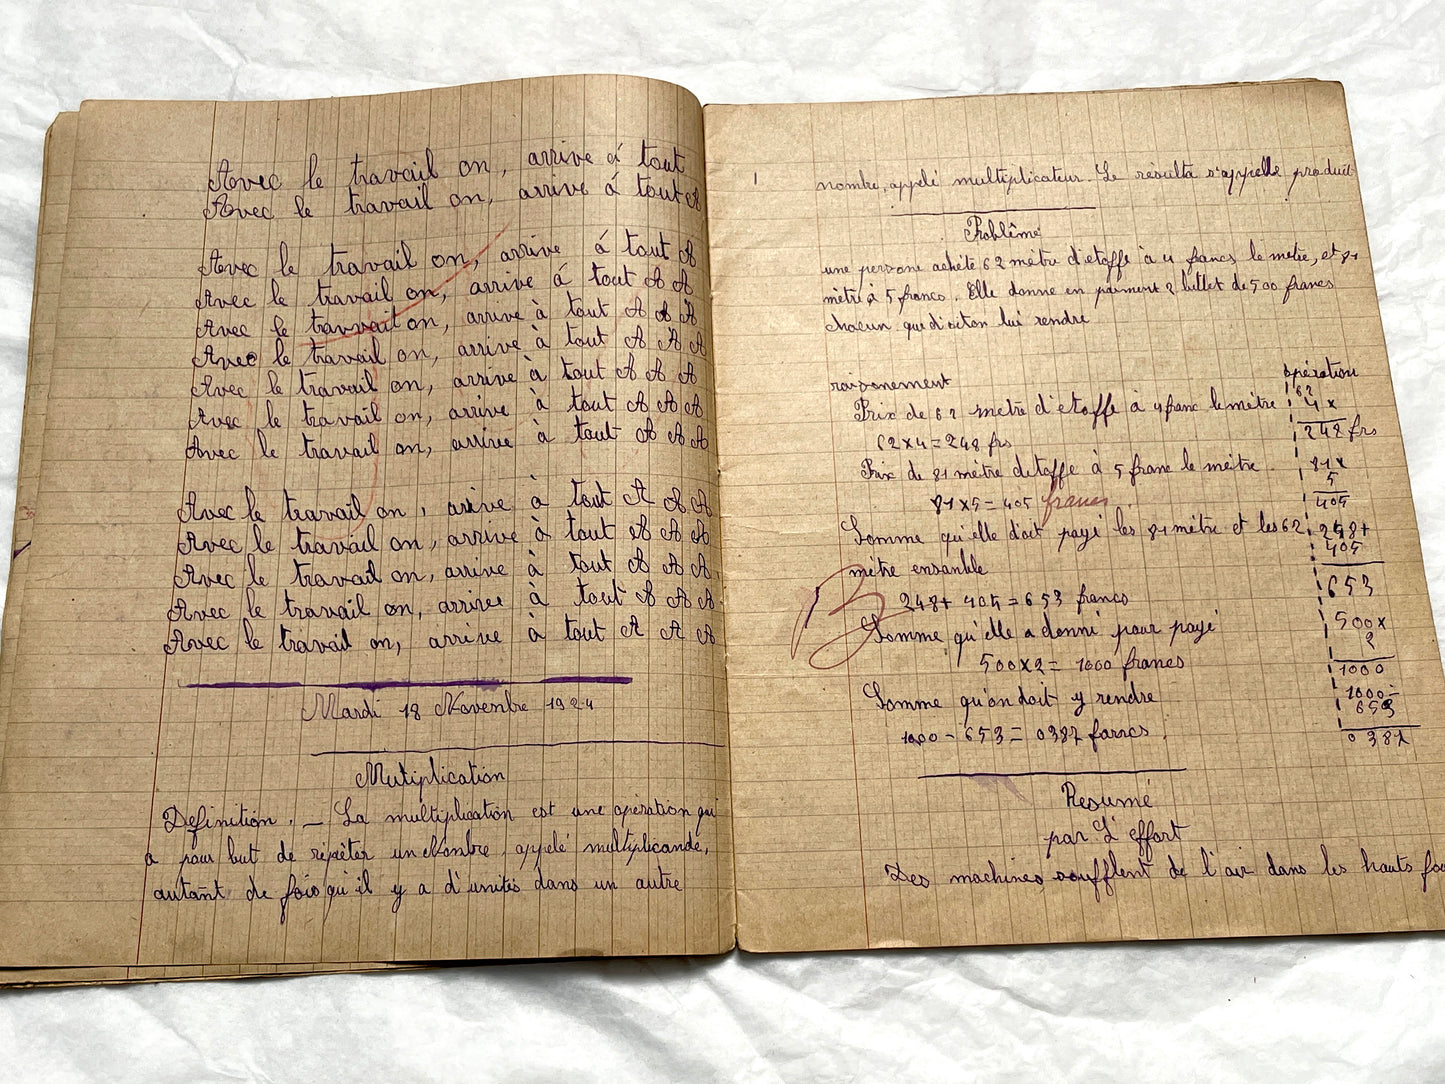 Avec le travail on, arrive á tout
Avec le travail on, arrive á tout A
Avec le travail on, arrive á tout A
Avec le travail on, arrive á tout A A
Avec le travail on, arrive à tout A A A
Avec le travail on, arrive à tout A A A
Avec le travail on, arrive à tout A A A
Avec le travail on, arrive à tout A A A
Avec le travail on, arrive à tout A A A
Avec le travail on, arrive à tout A A A
Avec le travail on, arrive à tout A A A
Avec le travail on, arrive à tout A A A
Avec le travail on, arrive à tout A A A
Avec le travail on, arrive à tout A A A
Mardi 18 Novembre 1924
Mutiplication
Definition. _ La multiplication est une opération qui
a pour but de répèter un Nombre, appelé multiplicande,
autant de fois qu'il y a d'unités dans un autre
nombre, appelé multiplicateur. Le résulta s'appelle produit
Problême
une persone achéte 62 mètre d'étoffe à 4 francs le mètre, et 81
mètre à 5 francs. Elle donne en paiment 2 billet de 500 francs
chacun que doiton lui rendre
raisonement
opération
Prix de 62 mètre d'étoffe à 4 franc le mètre
62
4 x
62 x 4 = 248 frs
248 frs
Prix de 81 mètre detoffe à 5 franc le mètre.
81 x
5
81 x 5 = 405 francs
405
Somme qu'elle doit payé les 81 mètre et les 62
248 +
405
mètre ensamble
653
248 + 405 = 653 francs
B
Somme qu'elle a donné pour payé
500 x
2
500 x 2 = 1000 francs
1000
Somme qu'on doit y rendre
1000 -
653
1000 - 653 = 0387 farncs.
0387
Resumé
par L'effort
Des machines soufflent de l'air dans les hauts fou